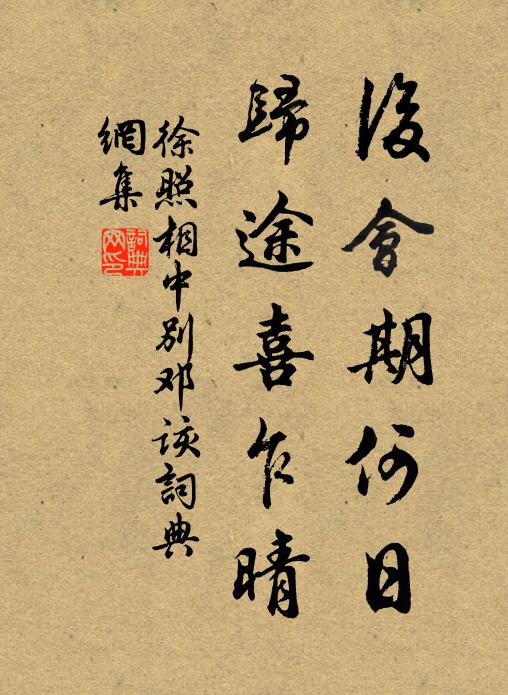 後會期何日
歸途喜乍晴
徐照相中別邓該詞典
網集
詞典網印